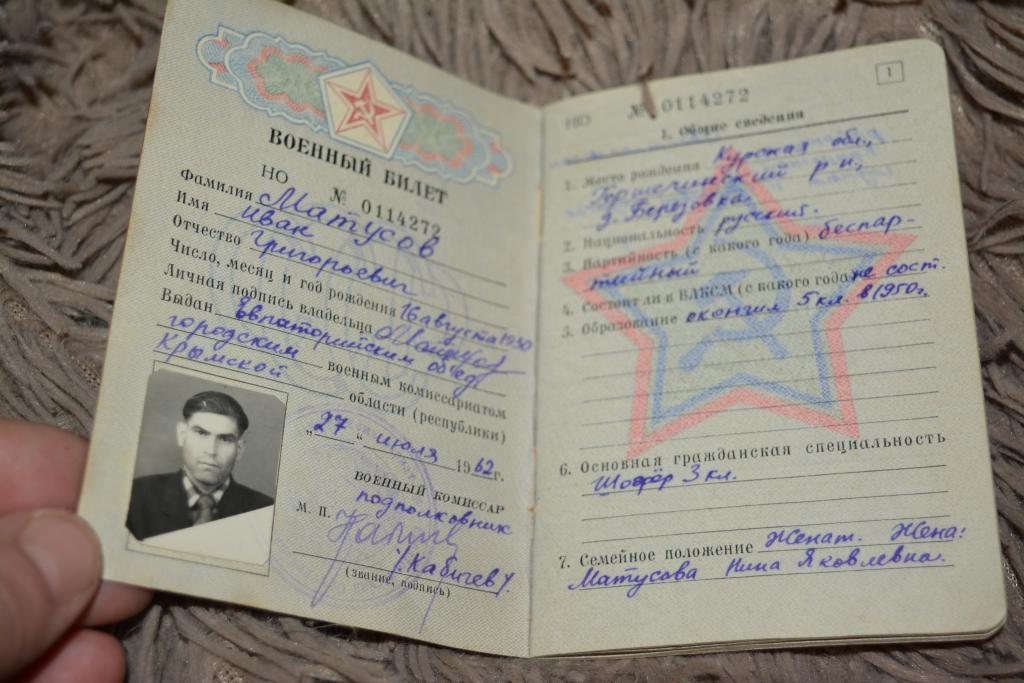 ВОЕННЫЙ БИЛЕТ
НО № 0114272
Фамилия Матусов
Имя Иван
Отчество Григорьевич
Число, месяц и год рождения 16 августа 1930
Личная подпись владельца
Выдан Евпаторийским об'ед.
городским военным комиссариатом
Крымской области (республики)
„27“ июля 1962 г.
ВОЕННЫЙ КОМИССАР
подполковник
М. П.
/Кабичев/.
(звание, подпись)
1
НО № 0114272
1. Общие сведения
1. Место рождения Курская обл.,
Горшечинский р-н,
д. Березовка
2. Национальность русский.
3. Партийность (с какого года) беспар-
тийный
4. Состоит ли в ВЛКСМ (с какого года) не сост.
5. Образование окончил 5 кл. в 1950г.
6. Основная гражданская специальность
Шофёр 3 кл.
7. Семейное положение Женат. Жена:
Матусова Нина Яковлевна.